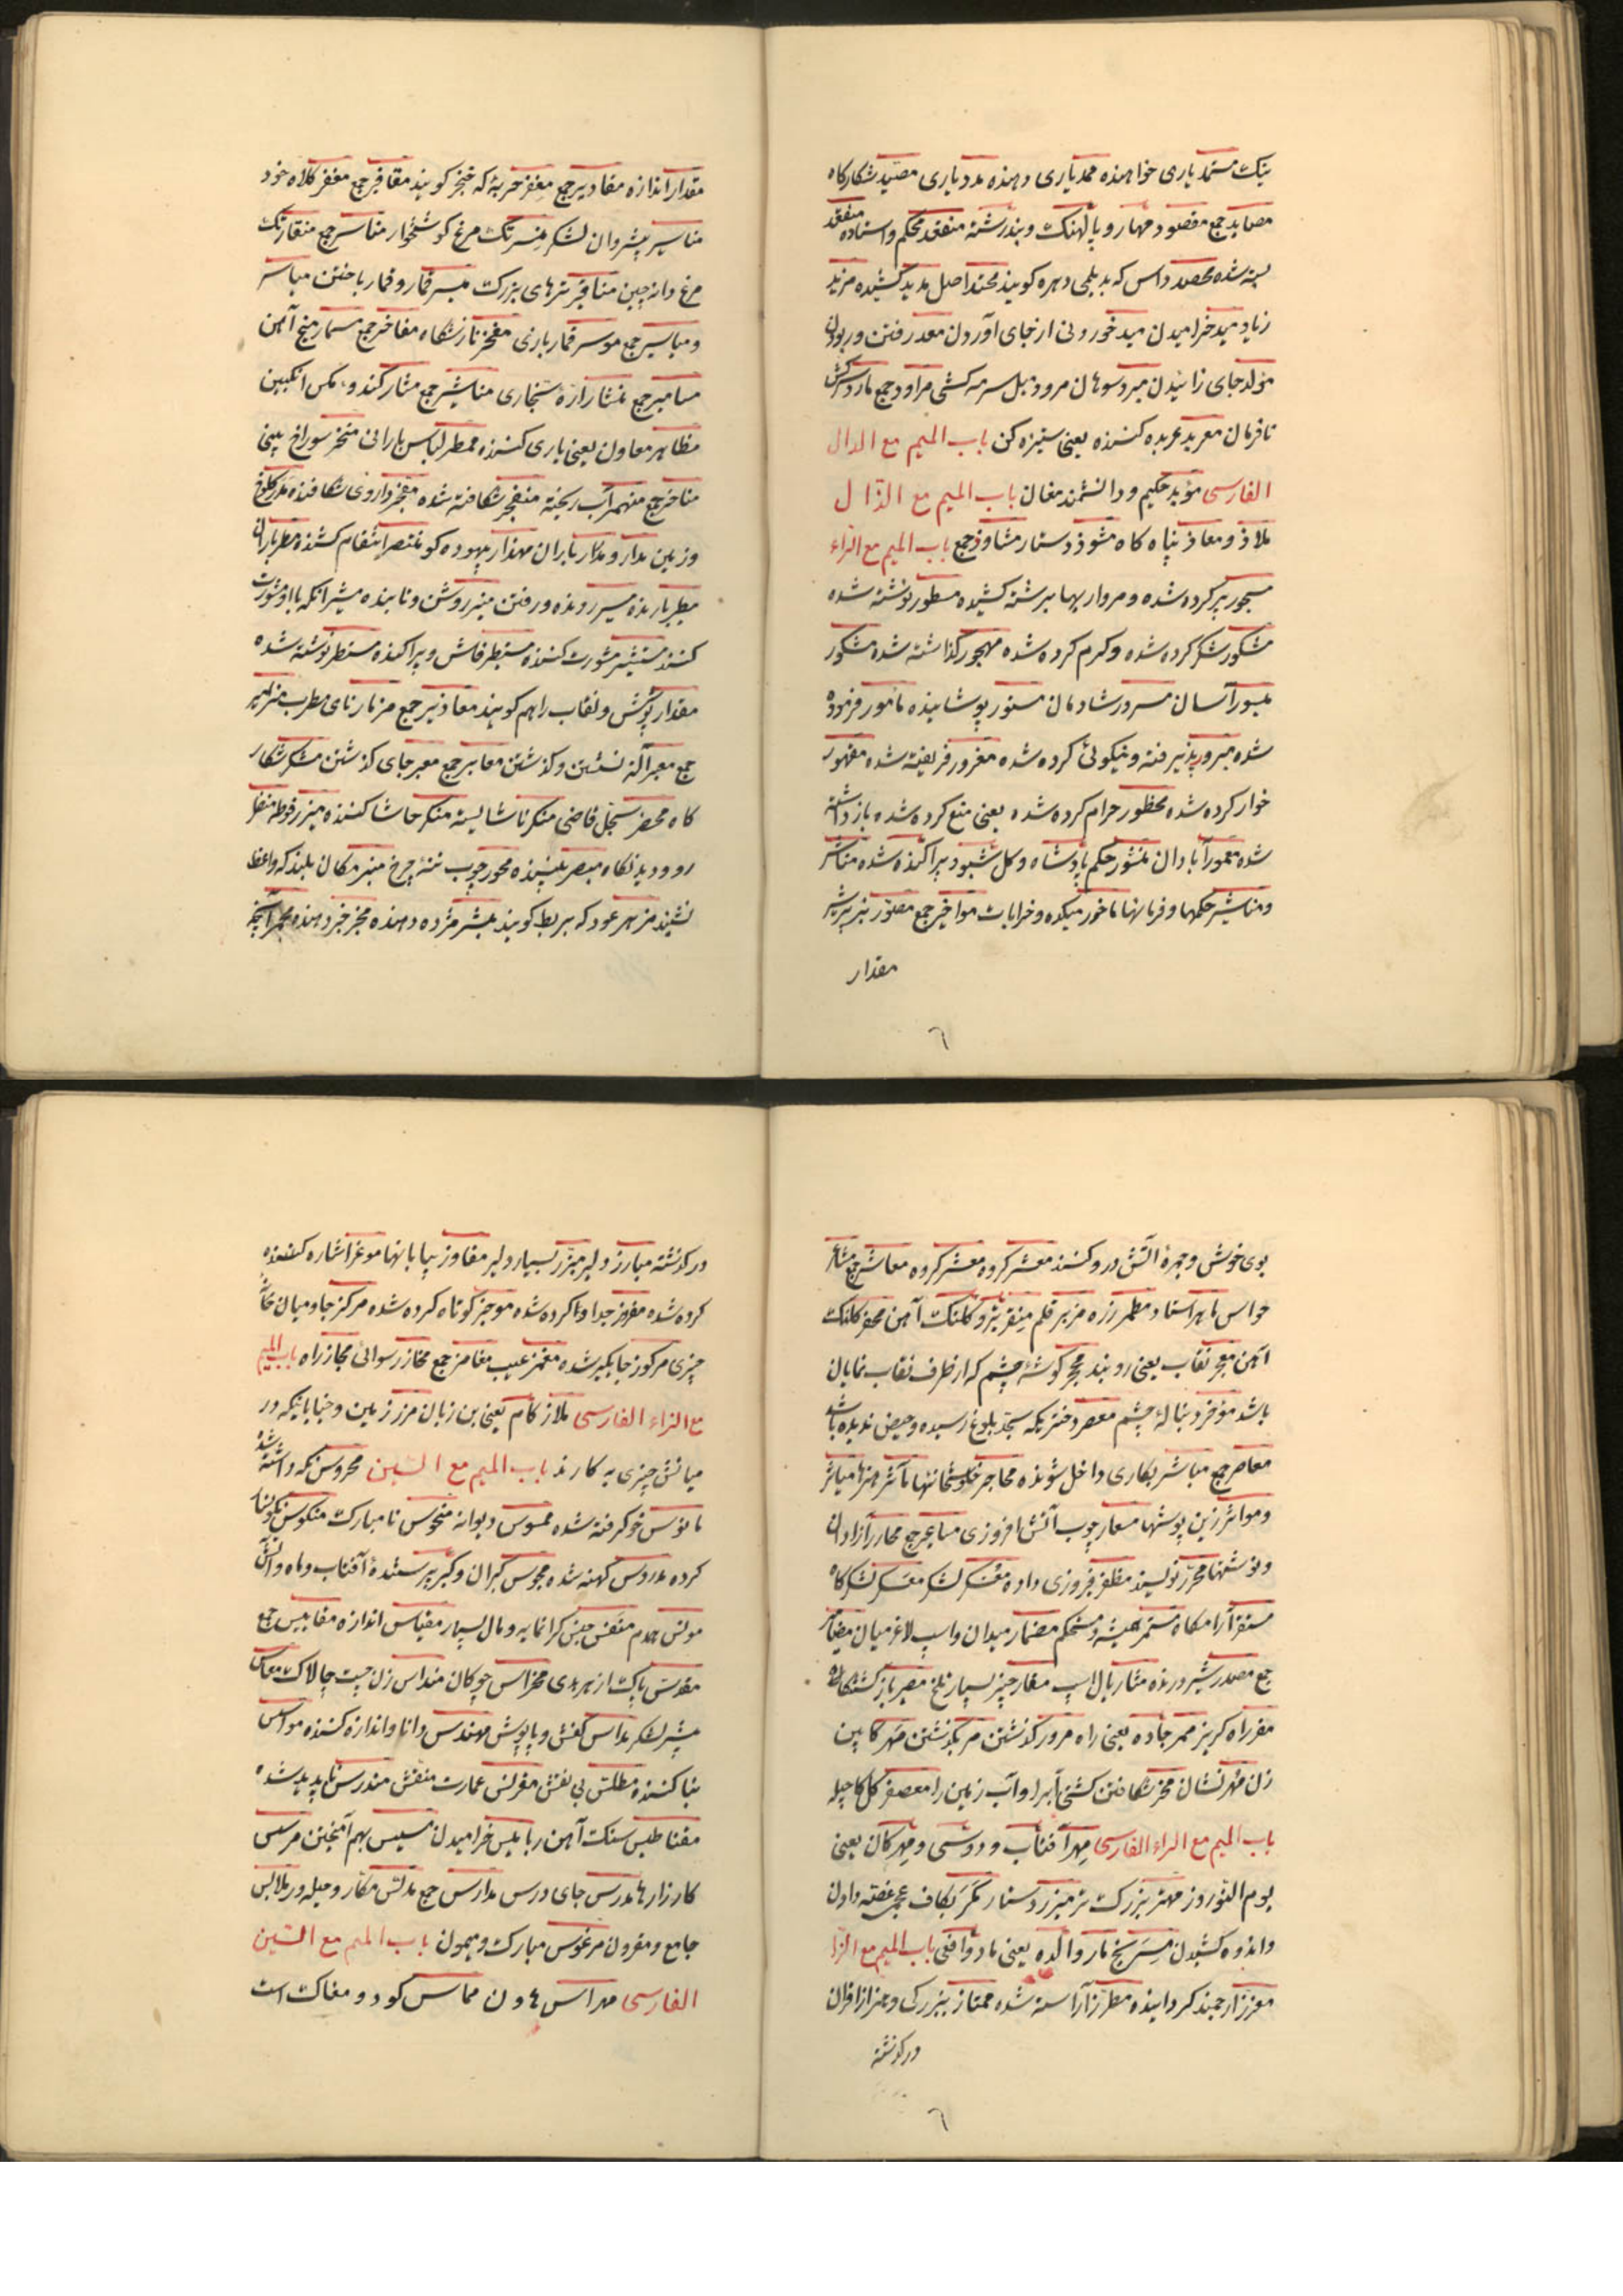 نیک مستمد یاری خواهنده ممد یاری دهنده مدد یاری مصید شکارگاه
مصاید جمع مقصود مهار و پالهنک و بند رشته منعقد محکم و استاده منعقد
بسته شده محصد داس که بدیلمی دهره کویند محتد اصل مدید کشیده مزید
زیاد مید خرامیدن مید خوردنی از جای آوردن معد رفتن و ربودن
مولد جای زائیدن مبرد سوهان مرود میل سرمه کشی مراود جمع مارد سرکش
نافرمان معربد عربده کننده یعنی ستیزه کن باب المیم مع الدال
الفارسی موبد حکیم و دانشمند مغان باب المیم مع الذال
ملاذ و معاذ پناه کاه مشوذ دستار مشاوذ جمع باب المیم مع الراء
مسجور پر کرده شده و مروارید بهر شته کشیده مسطور نوشته شده
مشکور شکر کرده شده و کرم کرده شده مهجور کذاشته شده مشکور
میسور آسان مسرور شادمان مستور پوشانیده مامور فرموده
شده مبرور پذیرفته و نیکوئی کرده شده مغرور فریفته شده مقهور
خوار کرده شده محظور حرام کرده شده یعنی منع کرده شده باز داشته
شده معمور آبادان منشور حکم پادشاه و کل شبو و پراکنده شده مناشر
و مناشیر حکمها و فرمانها ماخور میکده و خرابات مواخیر جمع
مقدار
مقدار اندازه مقادیر جمع مغفر حربه که خنجر کویند مغافر جمع مغفر کلاه خود
مناسیر پیشروان لشکر منسر تک مرغ کوشتخوار مناسر جمع منقار تک
مرغ دانه چین مناقیر تبرهای بزرک میسر قمار و قمار باختن میاسر
و میاسیر جمع موسر قمار بازی مفخر نازشکاه مفاخر جمع مسمار میخ آهن
مسامیر جمع منشار اره نجاری مناشیر جمع مشار کندو مکس انکبین
مظاهر معاون یعنی یاری کننده ممطر لباس بارانی منخر سوراخ بینی
مناخر جمع منهمر آب ریخته منفجر شکافته شده مفجر داروی شکافنده مدر کلوخ
و زمین مدار و مدرار باران مهذار بیهوده کو منتصر انتقام کشنده مطر باران
مطیر بارنده مسیر رونده و رفتن منیر روشن و تابنده مشیر آنکه با او مشورت
کنند مستشیر مشورت کننده مستطیر فاش و پراکنده مستطر نوشته شده
مقدار پوشش و نقاب را هم کویند معاذیر جمع مزمار نای مطرب مزامیر
جمع معبر آلة نشستن و کذشتن معابر جمع معبر جای کذشتن
کاه محضر سجل قاضی منکر ناشایسته منکر حاشا کننده میزر فوطه منظر
رو و دیدنکاه مبصر بیننده محور چوب تنه چرخ منبر مکان بلند که واعظ
نشیند مزهر عود که بربط کویند مبشر مژده دهنده مخبر خبر دهنده مجمر آنچه
بوی خوش و جمرۀ آتش در و کنند معشر کروه معشر کروه معاشر جمع مشاعر
حواس ماهر استاد مطمر رزه مزبر قلم منقر بتر و کلنک آهن محفر کلنک
آهن معجر نقاب یعنی روبند محجر کوشۀ چشم که از طرف نقاب نمایان
باشد موخر دنبالۀ چشم معصر دختریکه بحد بلوغ رسیده و حیض ندیده باشد
معاصر جمع مباشر بکاری داخل شونده محاجر خلوتخانها مآثر هنرها میاثر
و مواثر زین پوشها مسعار چوب آتش افروزی مساعر جمع محارر آزادان
و نوشتنها محرر نویسنده مظفر فیروزی داده معسکر لشکر معسکر لشکرکاه
مستقر آرامکاه مستمر همیشه و مستحکم مضمار میدان و اسپ لاغر میان مضامیر
جمع مصدر شیر درنده
مفر راه کریز ممر جاده یعنی راه مرور کذشتن مر بکذشتن مهر کابین
زن مهر نشان مخر شکافتن کشتی آبرا و آب زمین را معصفر کل کاجیله
باب المیم مع الراء الفارسی مهر آفتاب و دوستی و مهرکان یعنی
یوم النوروز مهتر بزرک تر میزر دستار مکر بکاف عجمی غصه دادن
و اندوه کشیدن مسر یخ مار والده یعنی مادر واقعی باب المیم مع الزا
معزز ارجمند کرداینده مطرز آراسته شده ممتاز ببزرکی و هنر از اقران
درکذشته
درکذشته مبارز دلیر مبرز بسیار دلیر مفاوز بیابانها موعز اشاره کننده
کرده شده مفرز جدا و تا کرده شده موجز کوتاه کرده شده مرکز جا و میان خانۀ
چیزی مرکوز جایکیر شده مغمز عیب مغامز جمع مخاز رسوائی مجاز راه باب المیم
مع الزاء الفارسی ملاز کام یعنی بن زبان مرز زمین و خیابانیکه در
میانش چیزی بکارند باب المیم مع السین محروس نکه داشته شده
مانوس خو کرفته شده ممسوس دیوانه منحوس نامبارک منکوس نکونسار
کرده مدروس کهنه شده مجوس کبران و کبر پرستندۀ آفتاب و ماه و آتش
مونس همدم منفس جنس کرانمایه و مال بسیار مقیاس اندازه مقاییس جمع
مقدس پاک از هر بدی محراس چوکان منداس زن چست چالاک
پیشر لشکر مداس کفش و پاپوش مهندس دانا و اندازه کننده موسس
بنا کننده مطلس بی نقش مقرنس عمارت منقش مندرس ناپدید شده
مغناطیس سنک آهن ربا میس خرامیدن مسیس بهم آمیختن مرس
کارزارها مدرس جای درس مدارس جمع مدلس مکار و حیله ور ملابس
جامع و مقرون مرغوس مبارک و میمون باب المیم مع السین
الفارسی مهراس هاون مماس کود و مغاک است